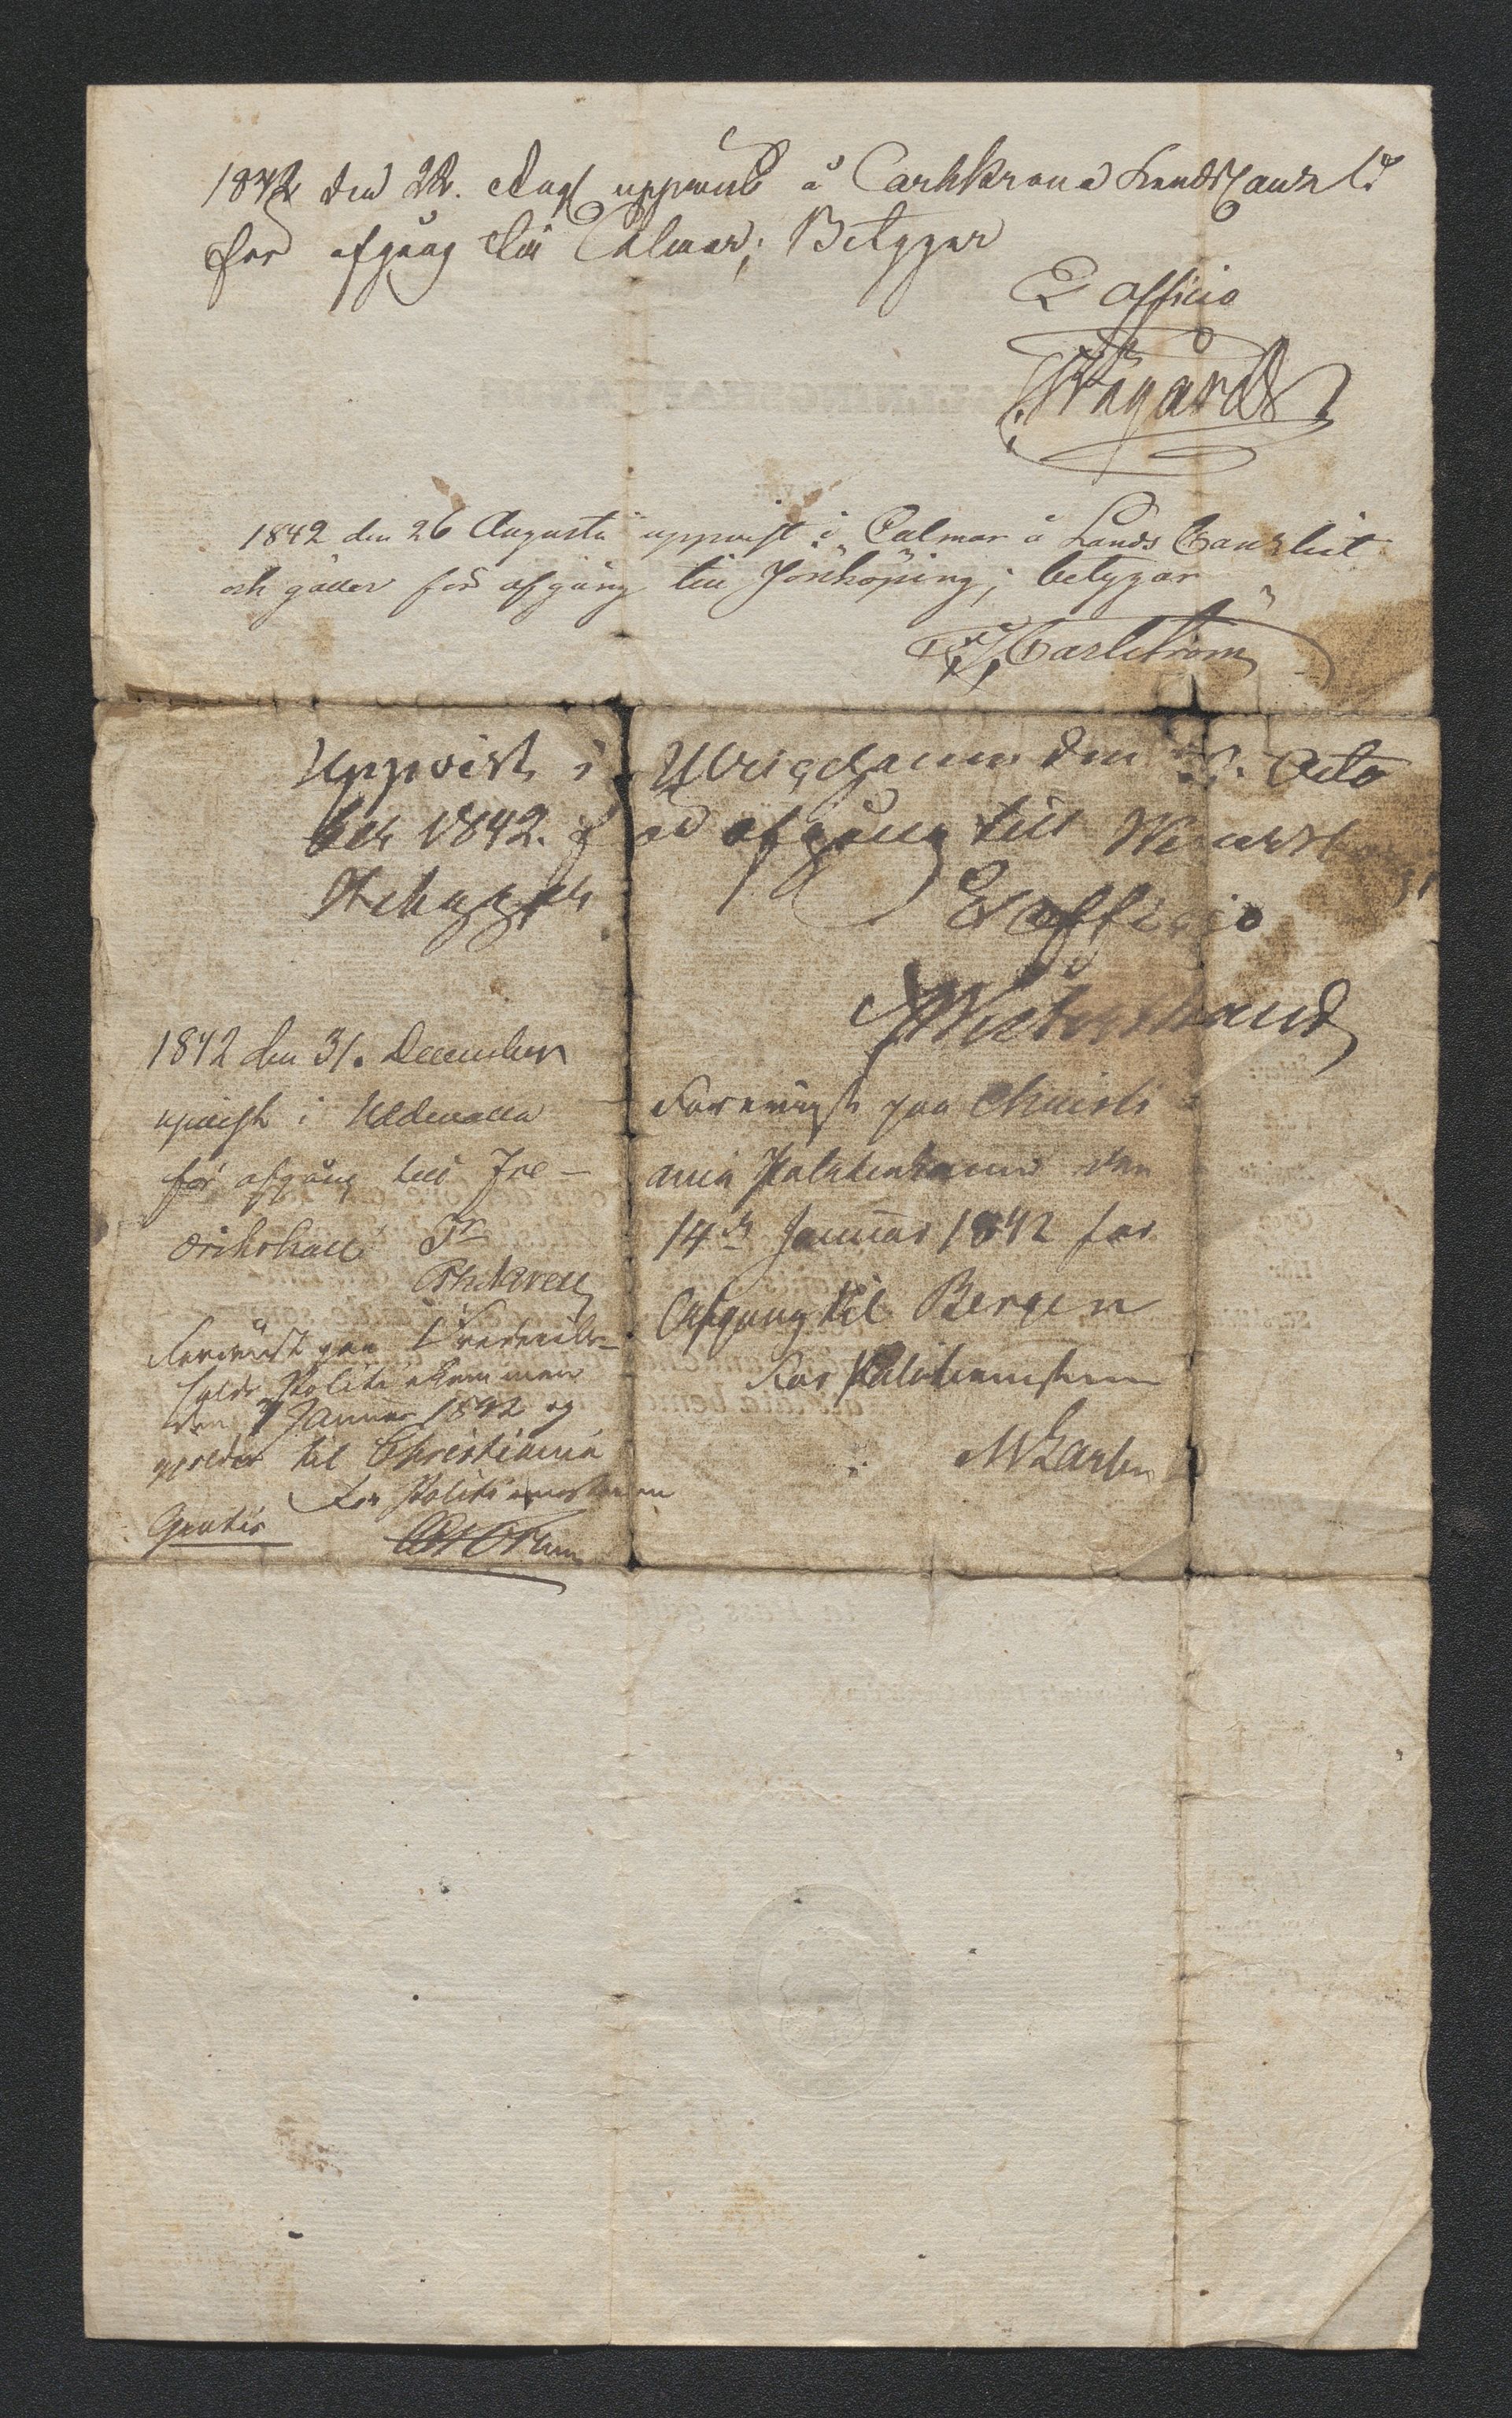 1842 den 22. Aug uppvist å Carlskrona LandsCansli
för afgång till Calmar; Betygar
Ex officio
1842 den 26 Augusti uppvist i Calmar å Lands Cansliet
och gäller för afgång till Jönköping; betygar
Carlström
Uppvist i Ulricehamn den Octo
ber 1842. för afgång till Wenersb
Betygar
Ex officio
1842 den 31. December
uppvist i Uddevalla
för afgång till Fre-
drikshall
Forevist paa Frederiks-
halds Politiekammer
den 7 Januar 1842 og
gjelder til Christiania
For Politiemesteren
Gratis
Forevist paa Christi
ania Politiekammer den
14de Januar 1842 for
Afgang til Bergen
For Politiemesteren